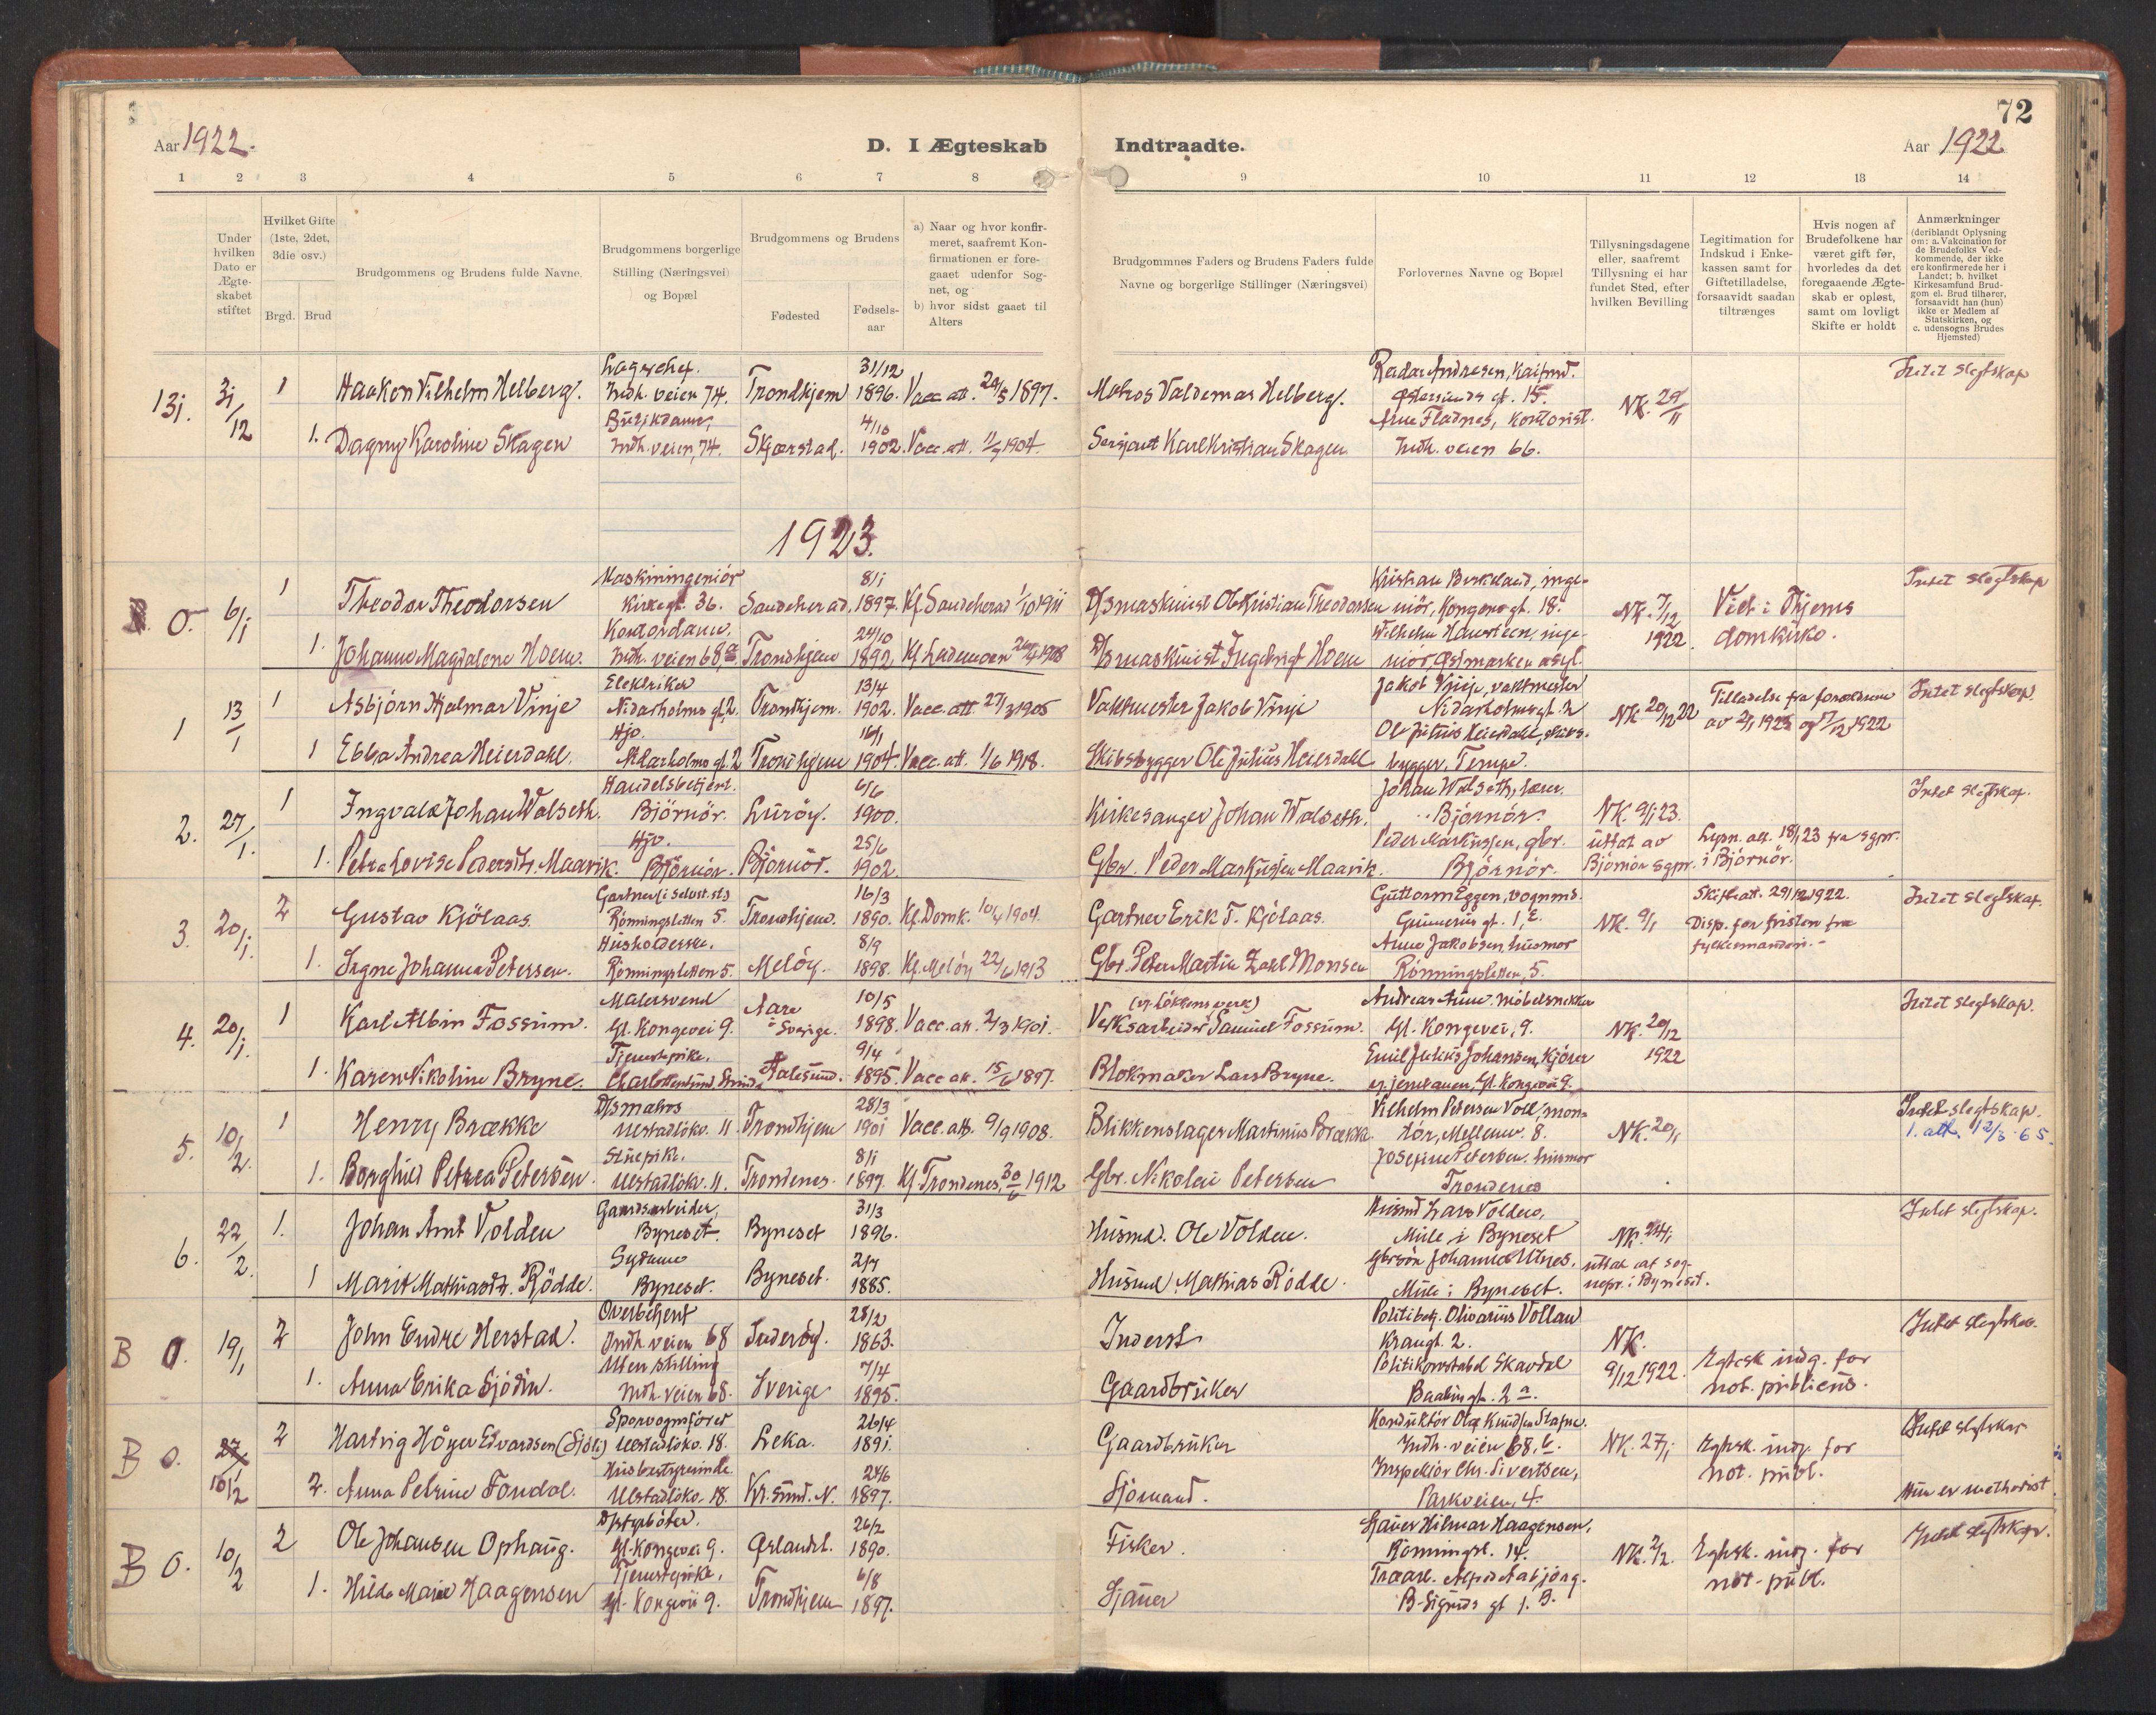 72
Aar 1922.
D. I Ægteskab Indtraadte.
Aar 1922
1 2 3 4 5 6 7 8 9 10 11 12 13 14
Under hvilken Dato er Ægteskabet stiftet
Hvilket Gifte (1ste, 2det, 3die osv.)
Brgd. Brud
Brudgommens og Brudens fulde Navne.
Brudgommens borgerlige Stilling (Næringsvei) og Bopæl
Brudgommens og Brudens
Fødested
Fødselsaar
a) Naar og hvor konfirmeret, saafremt Konfirmationen er foregaaet udenfor Sognet, og
b) hvor sidst gaaet til Alters
Brudgommnes Faders og Brudens Faders fulde Navne og borgerlige Stillinger (Næringsvei)
Forlovernes Navne og Bopæl
Tillysningsdagene eller, saafremt Tillysning ei har fundet Sted, efter hvilken Bevilling
Legitimation for Indskud i Enkekassen samt for Giftetilladelse, forsaavidt saadan tiltrænges
Hvis nogen af Brudefolkene har været gift før, hvorledes da det foregaaende Ægteskab er opløst, samt om lovligt Skifte er holdt
Anmærkninger (deriblandt Oplysning om: a. Vakcination for de Brudefolks Vedkommende, der ikke ere konfirmerede her i Landet; b. hvilket Kirkesamfund Brudgom el. Brud tilhører, forsaavidt han (hun) ikke er Medlem af Statskirken, og c. udensogns Brudes Hjemsted)
Lagerchef. 31/12 Reidar Andresen, Intet slegtskap
131. 31/12 1 Haakon Vilhelm Helberg. Indh. veien 74. Trondhjem 1896. Vacc. att. 24/5 1897. Matros Valdemar Helberg. Østersunds gt. 15. NK. 29/11
Butikdame, 4/10 Arne Fladnes, kontorist.
1. Dagny Karoline Skagen Indh. veien, 74. Skjerstad. 1902. Vacc. att. 11/7 1904. Sersjant Karl Kristian Skagen Indh. veien 66.
1923.
Maskiningeniör 8/1 Kristian Birkeland, inge- Intet slegtskap
0. 6/1 1 Theodor Theodorsen Kirkegt. 36. Sandeherad, 1897. Kf. Sandeherad 1/10 1911 D/S maskinist Ole Kristian Theodorsen niör, Kongens gt. 18. NK. 7/12 1922. Viet i Thjems domkirke.
Kontordame. 24/10 Wilhelm Hansteen, inge-
1. Johanne Magdalene Hoem. Indh. veien 68a. Trondhjem 1892 Kf. Lademoen 26/4 1908 D/S maskinist Ingebrigt Hoem niör, Østmarken asyl.
Elektriker 13/4 Jakob Vinje, vaktmester Intet slegtskap.
1 13/1 1 Asbjörn Hjalmar Vinje Nidarholms gt. 2. Trondhjem. 1902. Vacc. att. 27/3 1905 Vaktmester Jakob Vinje Nidarholmsgt. 2 NK 20/12 22 Tilladelse fra forældrene av 2/1 1923 og 17/12 1922
Hjv. 16/1 Ole Julius Heierdahl, skibs-
1 Ebba Andrea Heierdahl. Nidarholms gt. 2 Trondhjem 1904. Vacc. att. 1/6 1918. Skibsbygger Ole Julius Heierdahl bygger, Tempe.
Handelsbetjent. 6/6 Johan Walseth, lærer. Intet slegtskap.
2. 27/1. 1 Ingvald Johan Walseth. Björnör. Luröy. 1900. Kirkesanger Johan Walseth. Björnör. NK 9/1 23.
Hjv. 25/6 Peder Markussen, gbr. uttat av Lysn. att. 18/1 23 fra sgpr.
1. Petra Lovise Pedersdtr. Maarvik. Björnör. Björnör. 1902. Gbr. Peder Markussen Maarvik. Björnör. Björnör sgpr. i Björnör.
Gartner (i selvst. st.) 16/3 Guttorm Eggen, vognmd. Skifteatt. 29/12 1922. Intet slegtskap.
3. 20/1. 2 Gustav Kjölaas. Rönningsletten 5. Trondhjem. 1890. Kf. Domk. 10/4 1904. Gartner Erik T. Kjölaas. Gunnerus gt. 1, E. NK. 9/1 Disp. for fristen fra
Husholderske. 8/9 Anne Jakobsen, husmor fylkesmanden.
1. Signe Johanna Petersen. Rönningsletten 5. Melöy. 1898. Kf. Melöy 22/6 1913 Gbr. Peter Martin Zahl Monsen Rönningsletten, 5.
Malersvend 10/5 (v. Lökkens verk) Andreas Aune, möbelsnekker Intet slegtskap.
4. 20/1. 1 Karl Albin Fossum. Gl. Kongevei 9. Aare i Sverige. 1898. Vacc. att. 2/3 1901. Verksarbeider Samuel Fossum. Gl. Kongevei, 9. NK. 20/12 1922
Tjenestepike. 9/4 Emil Julius Johansen, kjörer
1. Karen Nikoline Bryne. Charlottenlund, Strinda Aalesund. 1895. Vacc. att. 15/6 1897. Blokmaker Lars Bryne. Gl. Kongevei 9.
D/S matros 28/3 Vilhelm Petersen Voll, mon- Intet slegtskap.
5. 10/2. 1 Henry Brække Ulstadlökv. 11. Trondhjem 1901 Vacc. att. 9/9 1908. Blikkenslager Martinus Brække. tör, Mellemv. 8. NK. 20/1 1. att. 12/3 65.
Stuepike. 8/1 Josefine Petersen. husmor
1. Borghild Petrea Petersen. Ulstadlökv. 11. Trondenes. 1897. Kf. Trondenes, 30/6 1912 Gbr. Nikolai Petersen Trondenes
Gaardsarbeider, 31/3 Husmd Lars Volden, Intet slegtskap.
6. 22/2. 1. Johan Arnt Volden Byneset. Byneset 1896. Husmd. Ole Volden. Mule i Byneset NK. 24/1
Sydame 2/7 Gbrsön Johannes Utnes, uttat at sog-
1 Marit Mathiasdtr. Rödde. Byneset. Byneset. 1885. Husmd. Mathias Rödde. Mule i Byneset. nepr. i Byneset.
Overbetjent 28/2 Politibetj. Olivarius Vollan Intet slegtskap.
B 0. 19/1 2 John Endre Herstad. Indh. veien 68 Inderöy. 1863. Inderst Krangt. 2. NK.
Uten stilling 7/4 Politikonstabel Skavdal 9/12 1922. Egtesk. indg. for
1. Anna Erika Sjödin. Indh. veien 68. Sverige 1895. Gaardbruker Baahusgt. 2 a. not. publicus.
Sporvognsförer 26/4 Konduktör Olaf Knudsen Stafne. Intet slegtskap
B 0. 27/1 10/2 2 Hartvig Höyer Edvardsen (Sjöli) Ulstadlökv. 18. Leka. 1891. Gaardbruker Indh. veien 68, b. NK. 27/1 Egtesk. indg. for
Husbestyrerinde. 24/6 Inspektör Chr. Sivertsen, not. publ.
2. Anna Petrine Fondal. Ulstadlökv. 18. Kr.sund. N. 1897. Sjömand. Parkveien, 4. Hun er methodist.
D/S fyrböter. 26/2 Sjauer Hilmar Haagensen, Intet slegtskap.
B 0. 10/2 2 Ole Johansen Ophaug. Gl. Kongevei 9. Ørlandet. 1890. Fisker. Rönningsl. 14. NK. 2/2. Egtesk. indg. for
Tjenestepike, 6/8 not. publ.
1. Hilda Marie Haagensen Gl. Kongevei 9. Trondhjem 1897. Sjauer B. Sigurds gt 1. B.